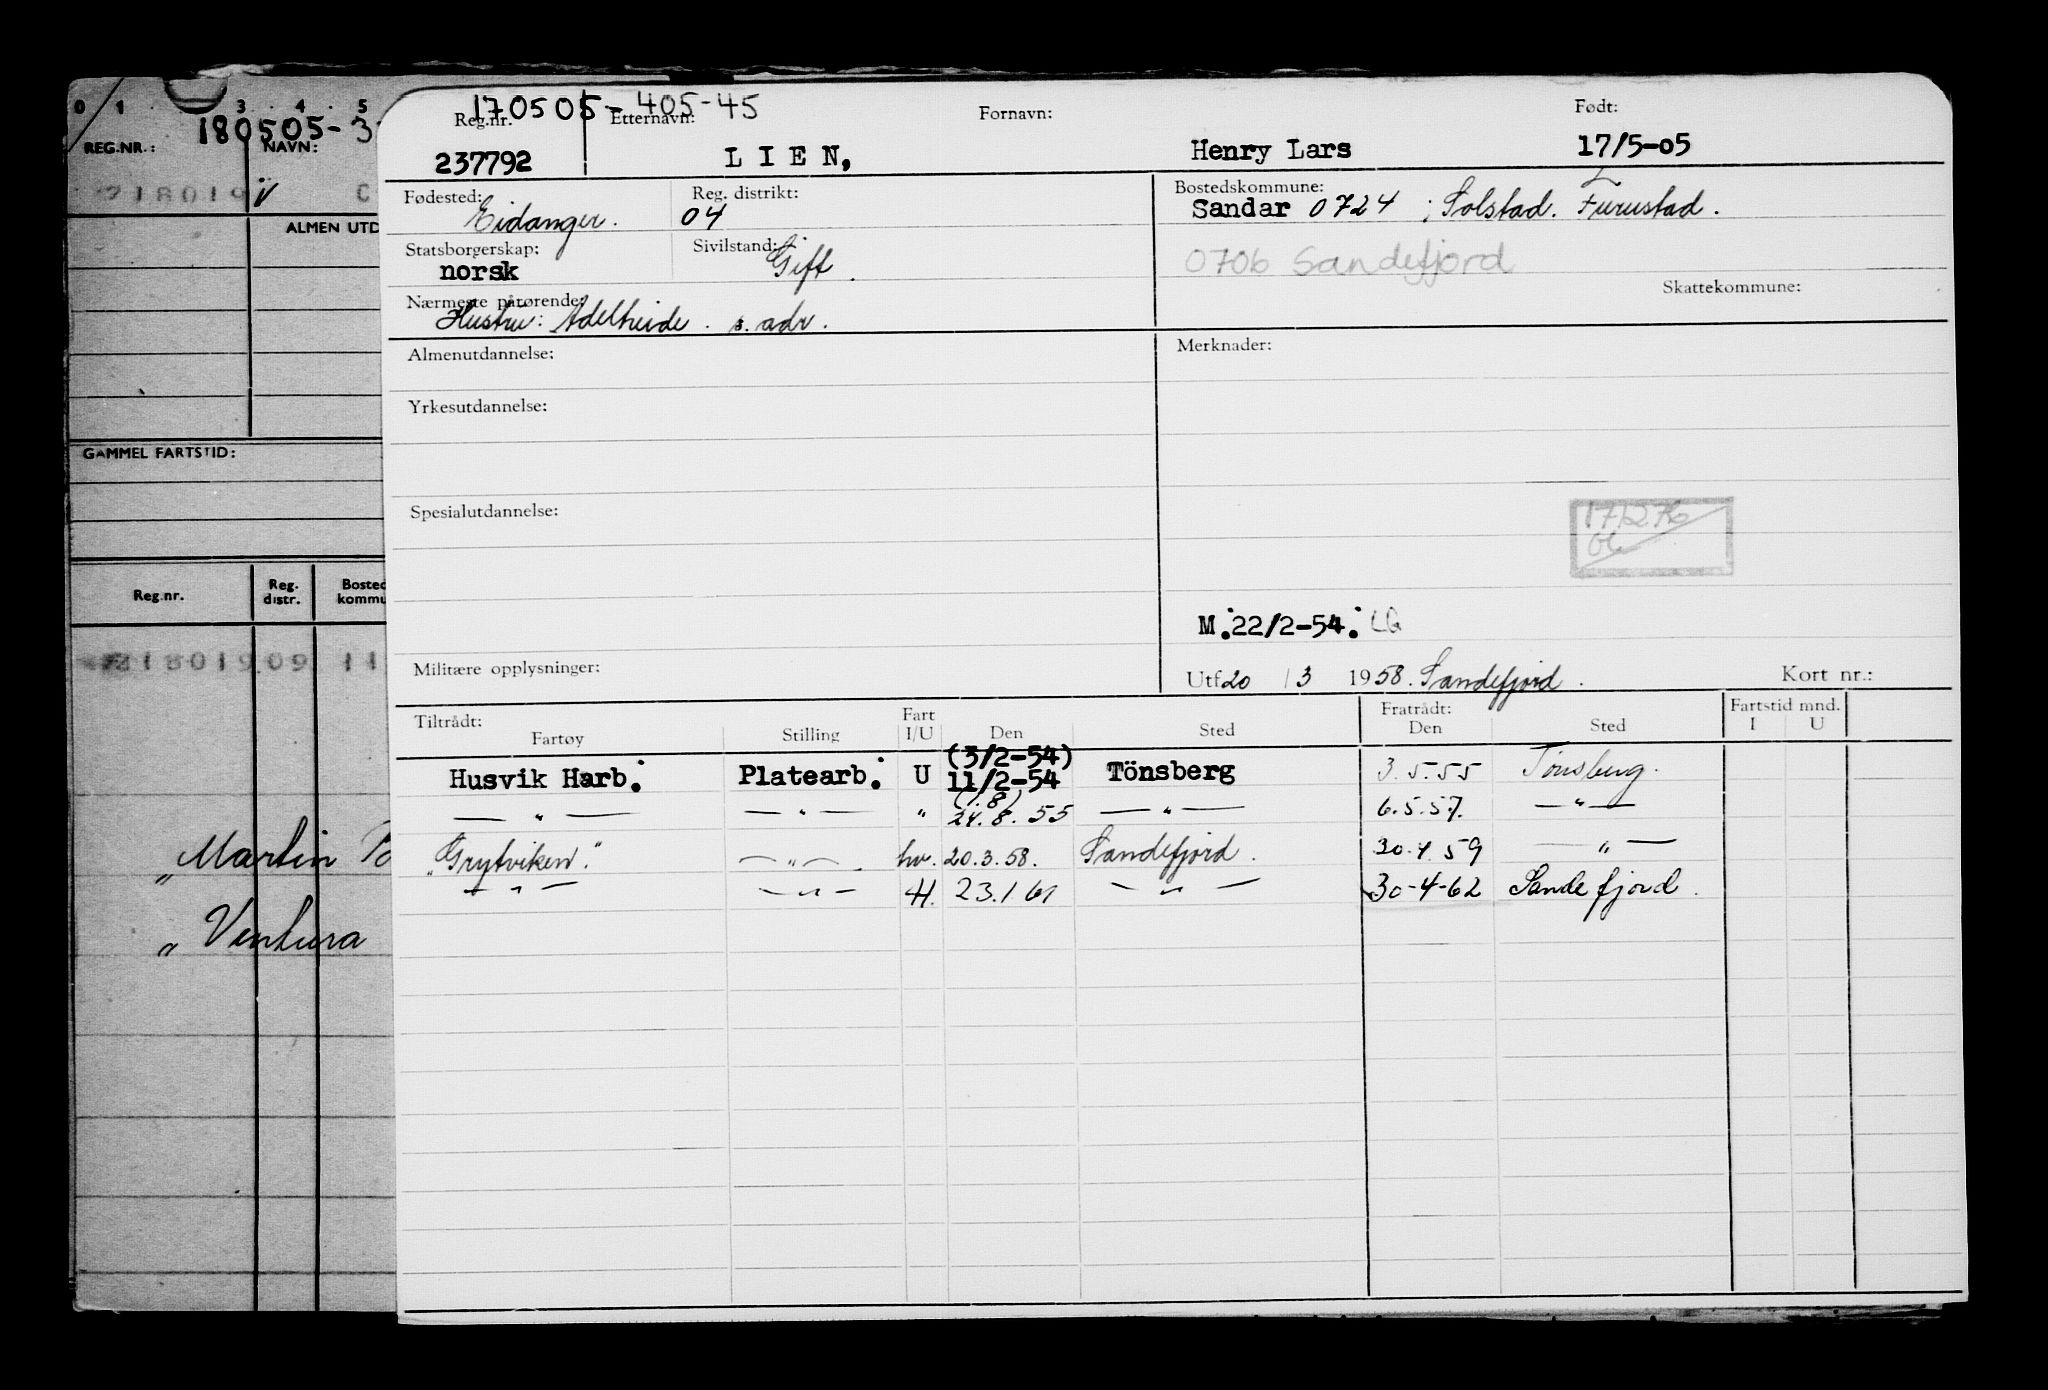 0 1 3 4 5
180505-3
REG.NR.: NAVN:
218019 V C
ALMEN UTD
GAMMEL FARTSTID:
Reg.nr. Reg. distr. Bosted kommu
218019 09 11
"Martin
"Ventura
170505-405-45
Reg.nr. Etternavn: Fornavn: Født:
237792 LIEN, Henry Lars 17/5-05
Fødested: Reg. distrikt: Bostedskommune:
Eidanger. 04 Sandar 0724 ; Solstad. Furustad.
Statsborgerskap: Sivilstand:
norsk Gift. 0706 Sandefjord
Nærmeste pårørende: Skattekommune:
Hustru: Adelheide. s. adr.
Almenutdannelse: Merknader:
Yrkesutdannelse:
Spesialutdannelse:
171276
M.22/2-54. LG
Militære opplysninger: Utf 20 / 3 1958. Sandefjord. Kort nr.:
Tiltrådt: Fart Fratrådt: Fartstid mnd.
Fartøy Stilling I/U Den Sted Den Sted I U
(3/2-54)
Husvik Harb. Platearb. U 11/2-54 Tönsberg 3.5.55 Tönsberg.
(1.8)
— " — — " — " 24.8.55 — " — 6.5.57. — " —
"Grytviken". — " — hv. 20.3.58. Sandefjord. 30.4.59 — " —
— " — — " — H. 23.1.61 — " — 30-4-62 Sandefjord.